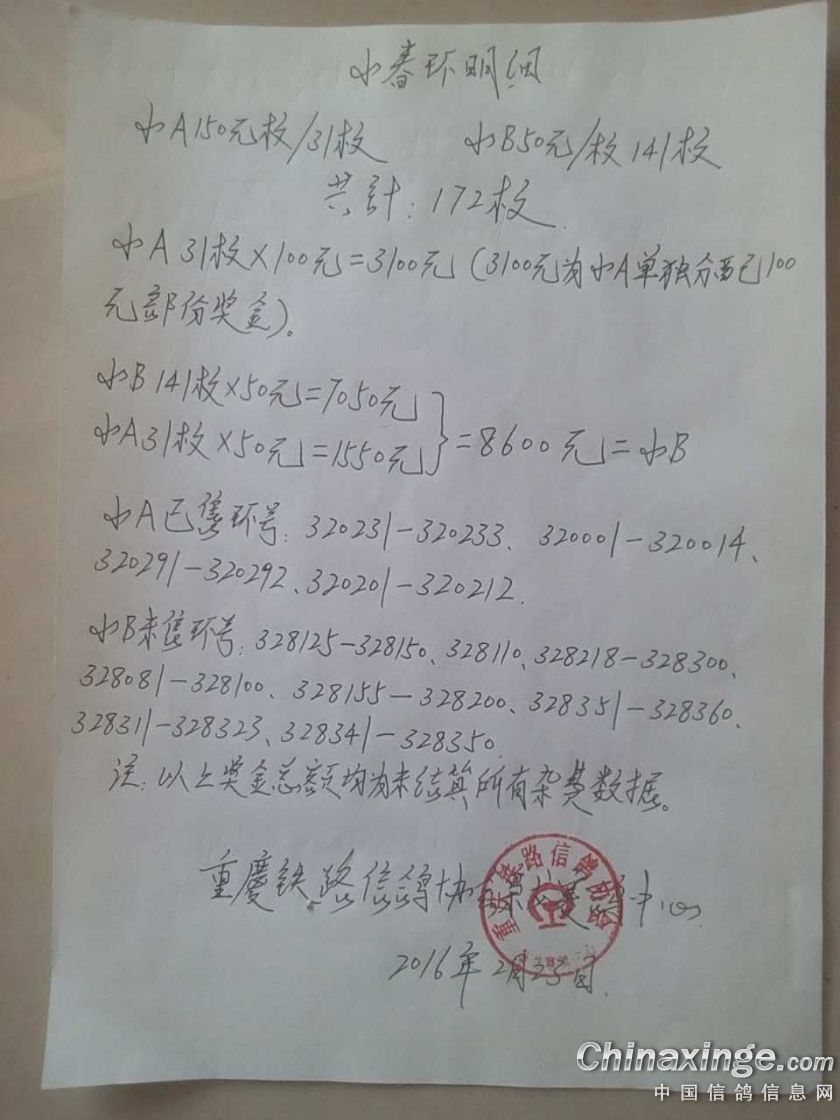 小春环明细
小A150元枚/31枚 小B50元/枚141枚
共計:172枚.
小A 31枚×100元=3100元(3100元为小A单独分配已100
元部份奖金)。
小B 141枚×50元=7050元
小A31枚×50元=1550元 }=8600元=小B
小A已售环号:320231-320233、320001-320014、
320291-320292、320201-320212.
小B未售环号:328125-328150、328110、328218-328300、
328081-328100、328155-328200、328351-328360、
328311-328323、328341-328350
注:以上奖金总额均为未结算所有杂费数据。
重慶铁路信鸽协会 中心
重庆铁路信鸽协会
2016年2月25日.
Chinaxinge.com
中国信鸽信息网